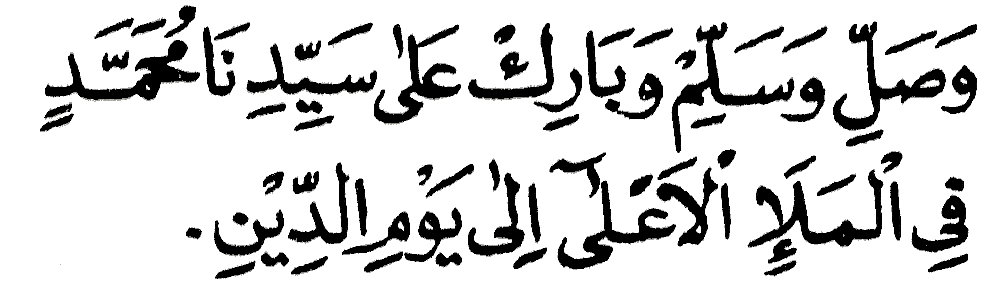 وَصَلِّ وَسَلِّمْ وَبَارِكْ عَلٰى سَيِّدِ نَا مُحَمَّدٍ
فِى الْمَلَإِ الْاَعْلٰٓى اِلٰى يَوْمِ الدِّيْنِ.